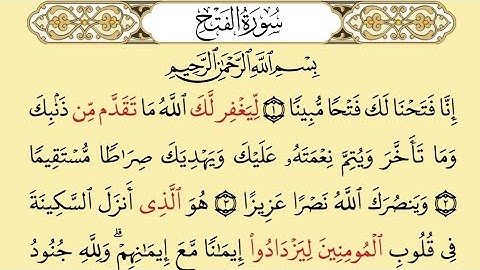 سُورَةُ الفَتْحِ
بِسْمِ اللَّهِ الرَّحْمَٰنِ الرَّحِيمِ
إِنَّا فَتَحْنَا لَكَ فَتْحًا مُّبِينًا ۝١ لِّيَغْفِر لَّكَ اللَّهُ مَا تَقَدَّم مِّن ذَنۢبِكَ
وَمَا تَأَخَّرَ وَيُتِمَّ نِعْمَتَهُۥ عَلَيْكَ وَيَهْدِيَكَ صِرَاطًا مُّسْتَقِيمًا
۝٢ وَيَنصُرَكَ اللَّهُ نَصْرًا عَزِيزًا ۝٣ هُوَ الَّذِى أَنزَلَ السَّكِينَةَ
فِى قُلُوبِ الْمُومِنِينَ لِيَزْدَادُوا۟ إِيمَانًا مَّعَ إِيمَانِهِمْ ۗ وَلِلَّهِ جُنُودُ